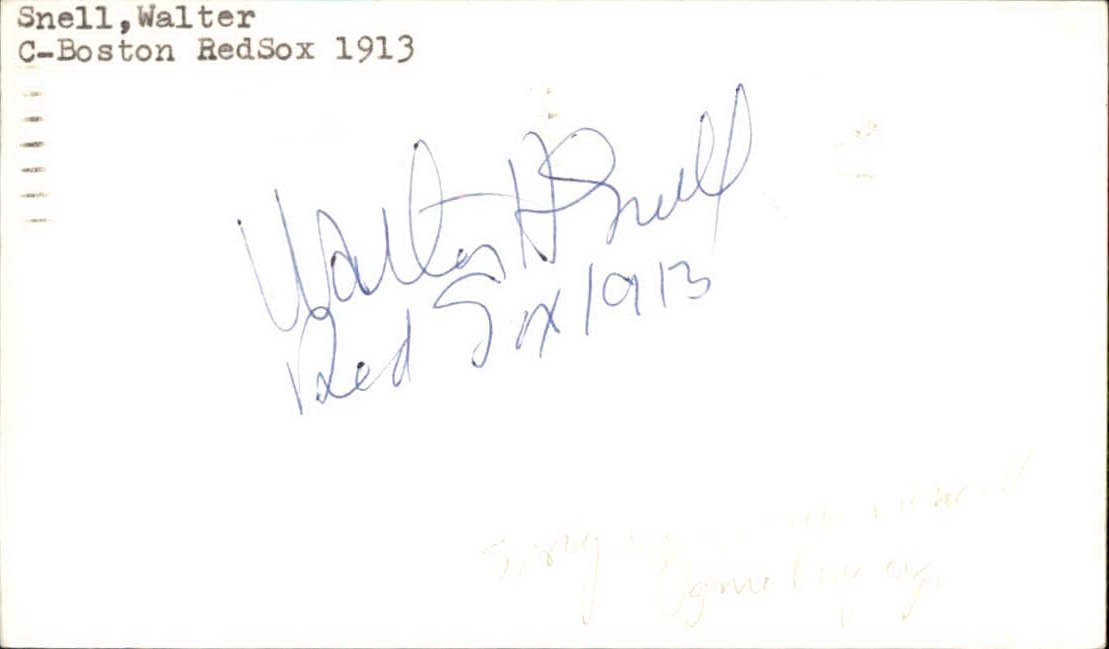 Snell,Walter
C-Boston RedSox 1913
Walter H Snell
Red Sox 1913